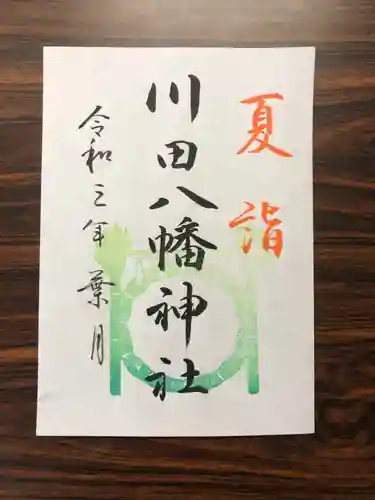 夏詣
川田八幡神社
令和三年葉月